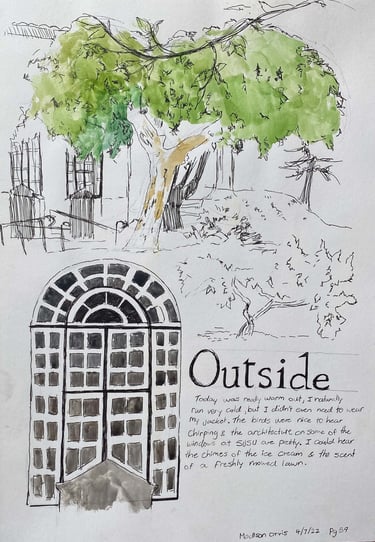 Outside
Today was really warm out, I naturally
run very cold, but I didn't even need to wear
my jacket. The birds were nice to hear
chirping & the architecture on some of the
windows at SJSU are pretty. I could hear
the chimes of the ice cream & the scent
of a freshly mowed lawn.
Madison Orvis 4/7/22 Pg 59